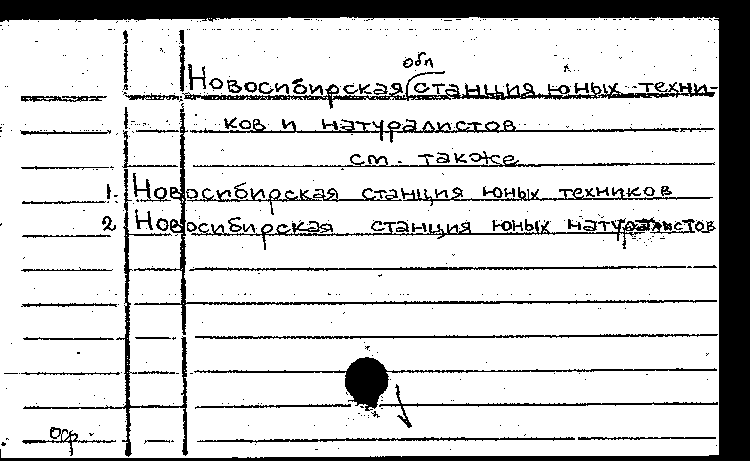 обл
Новосибирская станция юных техни-
ков и натуралистов
см. также
1. Новосибирская станция юных техников
2 Новосибирская станция юных натуралистов